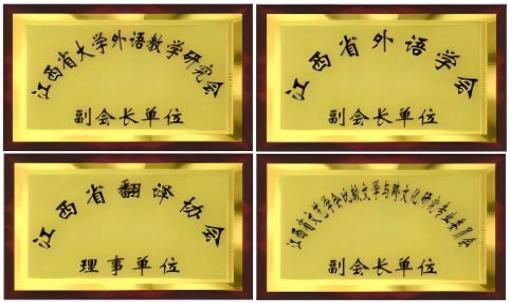 江西省大学外语教学研究会
副会长单位
江西省外语学会
副会长单位
江西省翻译协会
理事单位
江西省文艺学会比较文学与跨文化研究专业委员会
副会长单位